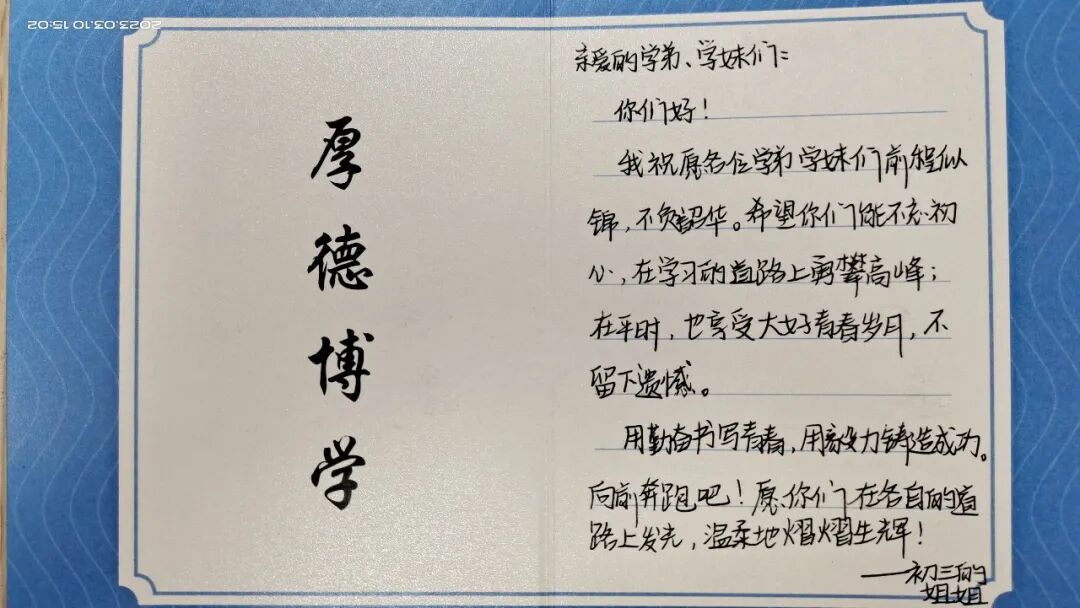 2023.03.10 15:02
厚
德
博
学
亲爱的学弟、学妹们：
你们好！
我祝愿各位学弟学妹们前程似
锦，不负韶华。希望你们能不忘初
心，在学习的道路上勇攀高峰；
在平时，也享受大好青春岁月，不
留下遗憾。
用勤奋书写青春，用毅力铸造成功。
向前奔跑吧！愿你们在各自的道
路上发光，温柔地熠熠生辉！
——初三的
姐姐